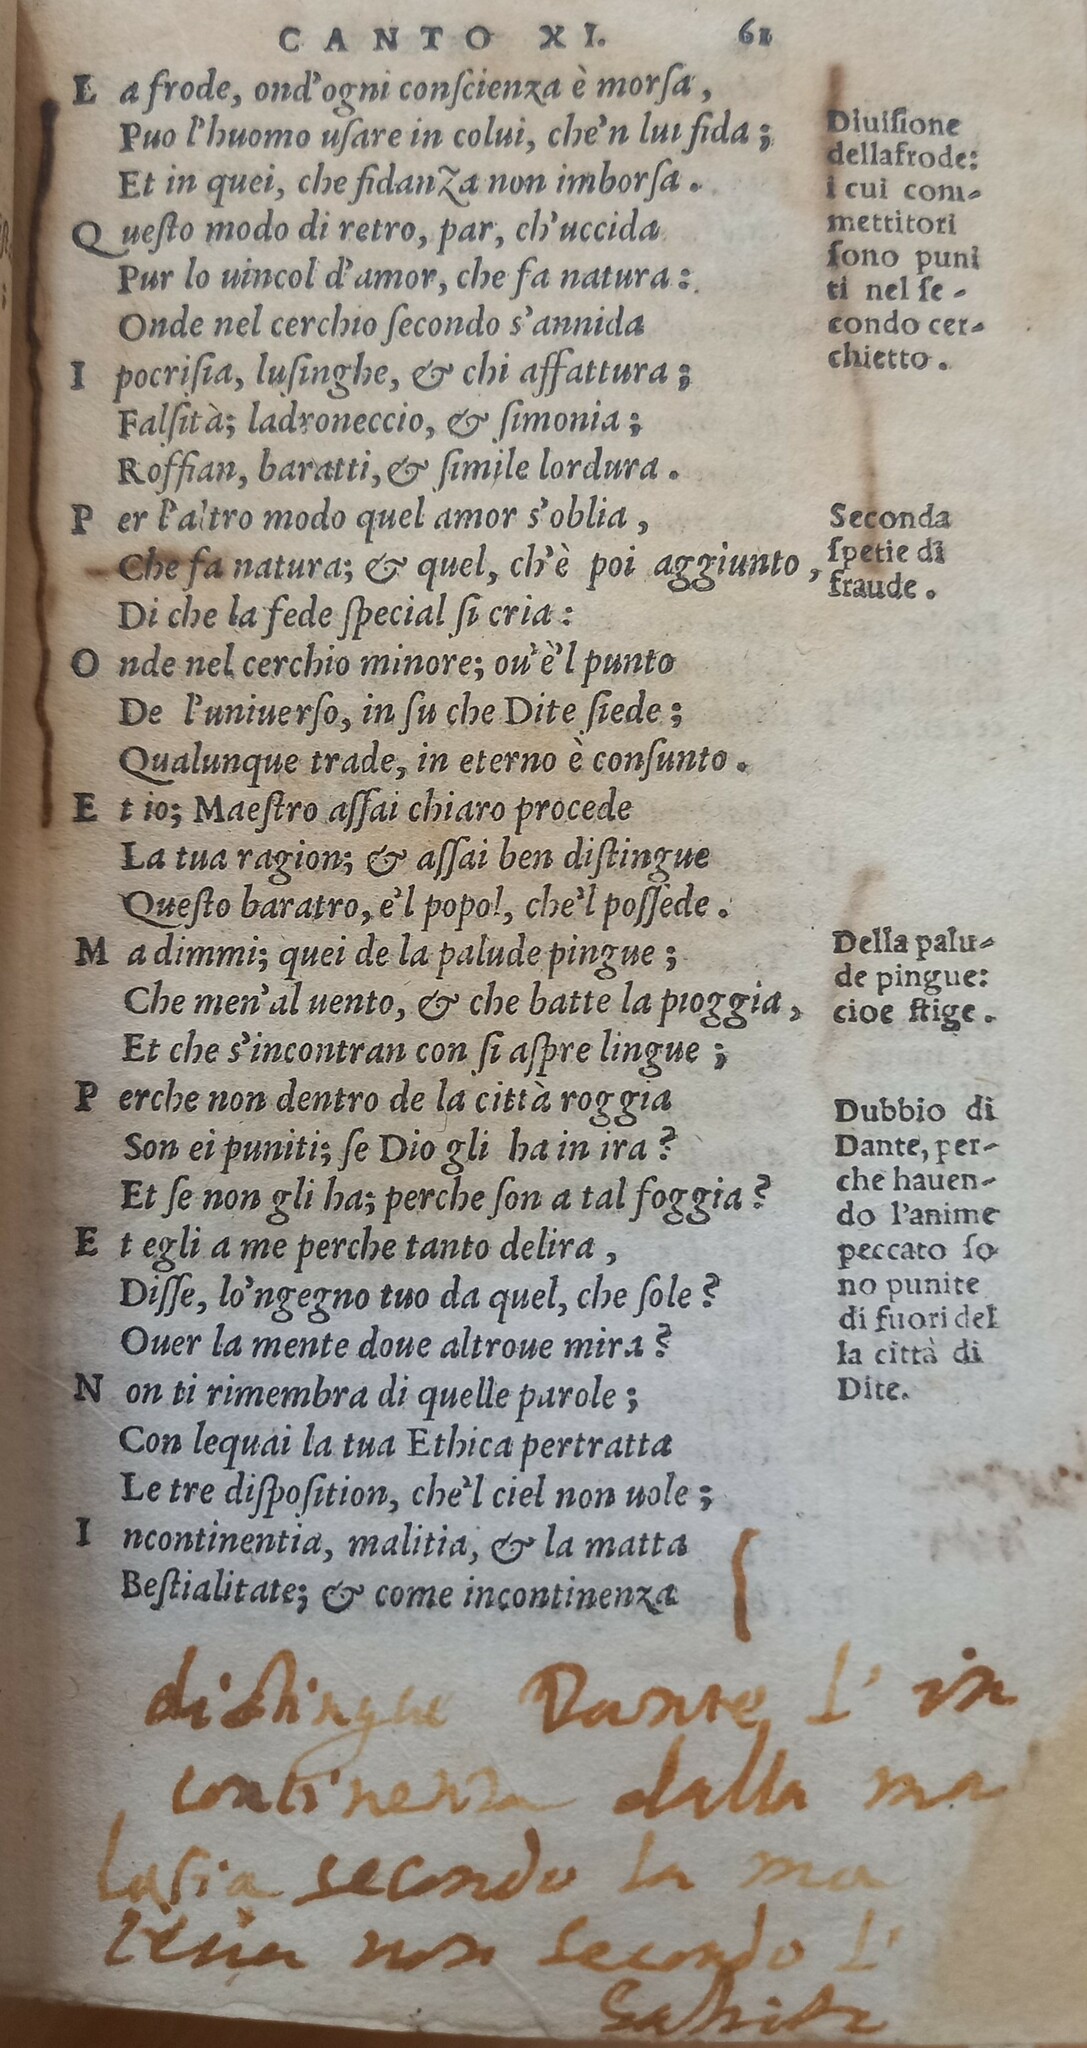 CANTO XI. 61
La frode, ond'ogni conſcienza è morſa,
Puo l'huomo uſare in colui, che'n lui fida;
Et in quei, che fidanza non imborſa.
Queſto modo di retro, par, ch'uccida
Pur lo uincol d'amor, che fa natura:
Onde nel cerchio ſecondo s'annida
Ipocriſia, luſinghe, & chi affattura;
Falſità; ladroneccio, & ſimonia;
Roffian, baratti, & ſimile lordura.
Per l'altro modo quel amor s'oblia,
Che fa natura; & quel, ch'è poi aggiunto,
Di che la fede ſpecial ſi cria:
Onde nel cerchio minore; ou'è'l punto
De l'uniuerſo, in ſu che Dite ſiede;
Qualunque trade, in eterno è conſunto.
Et io; Maeſtro aſſai chiaro procede
La tua ragion; & aſſai ben diſtingue
Queſto baratro, e'l popol, che'l poſſede.
Ma dimmi; quei de la palude pingue;
Che men'al uento, & che batte la pioggia,
Et che s'incontran con ſi aſpre lingue;
Perche non dentro de la città roggia
Son ei puniti; ſe Dio gli ha in ira?
Et ſe non gli ha; perche ſon a tal foggia?
Et egli a me perche tanto delira,
Diſſe, lo'ngegno tuo da quel, che ſole?
Ouer la mente doue altroue mira?
Non ti rimembra di quelle parole;
Con lequai la tua Ethica pertratta
Le tre diſpoſition, che'l ciel non uole;
Incontinentia, malitia, & la matta
Beſtialitate; & come incontinenza
Diuiſione
dellafrode:
i cui com-
mettitori
ſono puni
ti nel ſe-
condo cer-
chietto.
Seconda
ſpetie di
fraude.
Della palu-
de pingue:
cioe ſtige.
Dubbio di
Dante, per-
che hauen-
do l'anime
peccato ſo
no punite
di fuori del
la città di
Dite.
distinghe Dante l' in
continenza dalla ma
lasia secondo la ma
non secondo l'